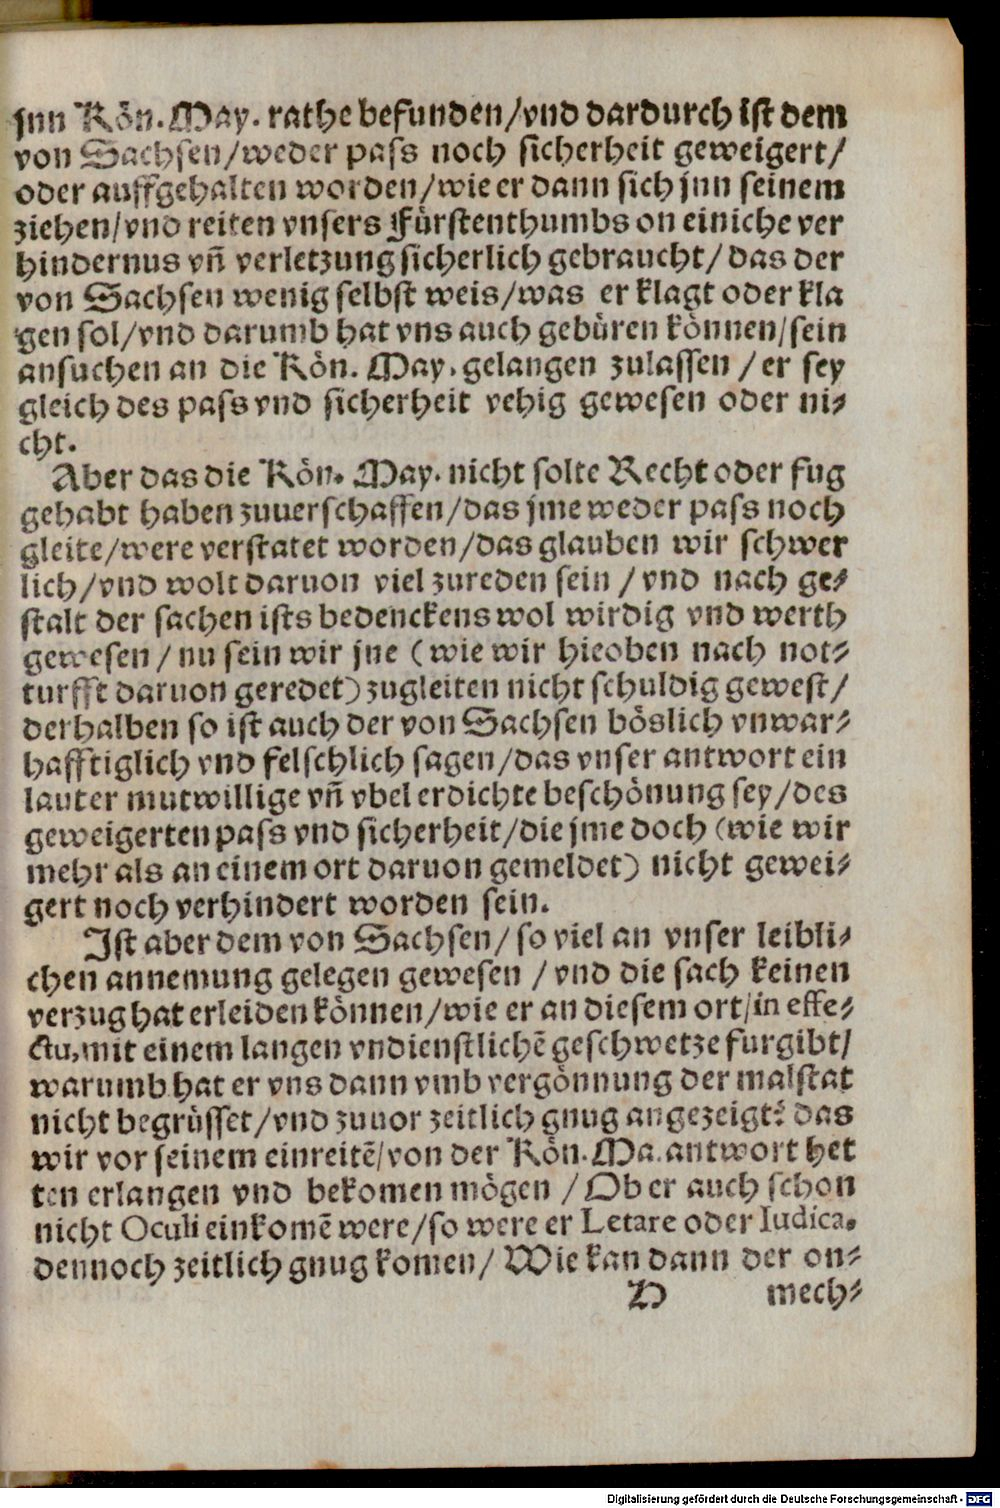 jnn Kön. May. rathe befunden/vnd dardurch ist dem
von Sachsen/weder pass noch sicherheit geweigert/
oder auffgehalten worden/wie er dann sich jnn seinem
ziehen/vnd reiten vnsers Fürstenthumbs on einiche ver
hindernus vñ verletzung sicherlich gebraucht/das der
von Sachsen wenig selbst weis/was er klagt oder kla
gen sol/vnd darumb hat vns auch gebüren können/sein
ansuchen an die Kön. May. gelangen zulassen/er sey
gleich des pass vnd sicherheit vehig gewesen oder ni⸗
cht.
Aber das die Kön. May. nicht solte Recht oder fug
gehabt haben zuuerschaffen/das jme weder pass noch
gleite/were verstatet worden/das glauben wir schwer
lich/vnd wolt daruon viel zureden sein/vnd nach ge⸗
stalt der sachen ists bedenckens wol wirdig vnd werth
gewesen/nu sein wir jne (wie wir hieoben nach not⸗
turfft daruon geredet) zugleiten nicht schuldig gewest/
derhalben so ist auch der von Sachsen böslich vnwar⸗
hafftiglich vnd felschlich sagen/das vnser antwort ein
lauter mutwillige vñ vbel erdichte beschönung sey/des
geweigerten pass vnd sicherheit/die jme doch (wie wir
mehr als an einem ort daruon gemeldet) nicht gewei⸗
gert noch verhindert worden sein.
Ist aber dem von Sachsen/so viel an vnser leibli⸗
chen annemung gelegen gewesen/vnd die sach keinen
verzug hat erleiden können/wie er an diesem ort/in effe⸗
ctu, mit einem langen vndienstlichē geschwetze furgibt/
warumb hat er vns dann vmb vergönnung der malstat
nicht begrüsset/vnd zuuor zeitlich gnug angezeigt? das
wir vor seinem einreitē/von der Kön. Ma. antwort het
ten erlangen vnd bekomen mögen/Ob er auch schon
nicht Oculi einkomē were/so were er Letare oder Iudica.
dennoch zeitlich gnug komen/Wie kan dann der on⸗
D mech⸗
Digitalisierung gefördert durch die Deutsche Forschungsgemeinschaft - DFG